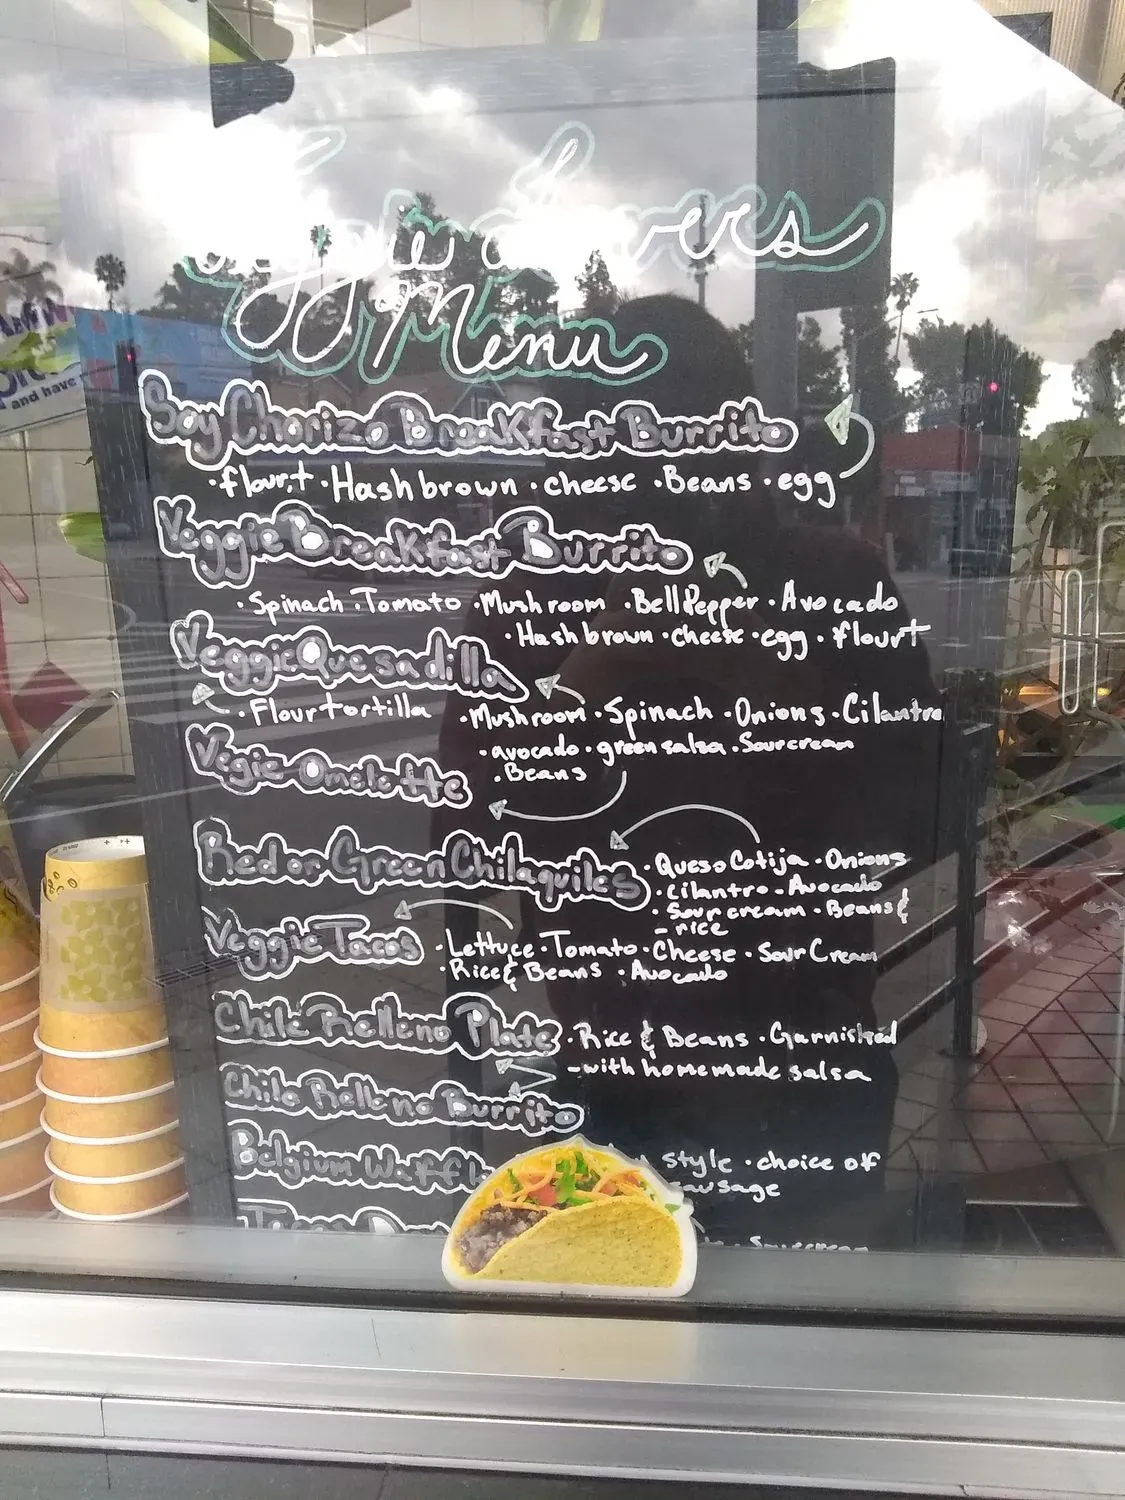 Veggie Lovers
Menu
Soy Chorizo Breakfast Burrito
·flour.t ·Hashbrown ·cheese ·Beans ·egg
Veggie Breakfast Burrito
·Spinach ·Tomato ·Mushroom ·Bell Pepper ·Avocado
·Hashbrown ·cheese ·egg ·flourt
Veggie Quesadilla
·Flour tortilla ·Mushroom ·Spinach ·Onions ·Cilantro
·avocado ·green salsa ·Sour cream
·Beans
Vegie Omelette
Red or Green Chilaquiles ·Queso Cotija ·Onions
·cilantro ·Avocado
·Sour cream ·Beans &
-rice
Veggie Tacos ·Lettuce ·Tomato ·Cheese ·Sour Cream
·Rice & Beans ·Avocado
Chile Relleno Plate ·Rice & Beans ·Garnished
-with homemade salsa
Chile Relleno Burrito
Belgium style ·choice of
sausage
Sourcream
and have